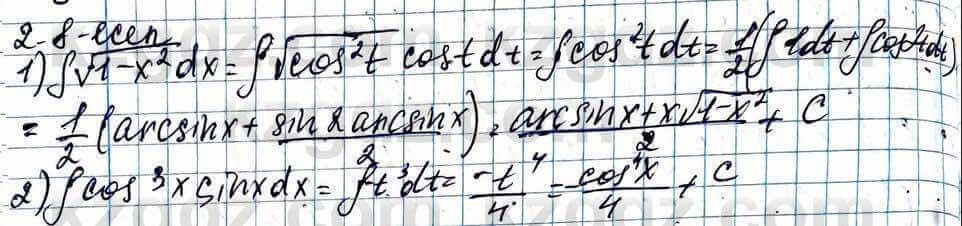 2-8-есеп
1) ∫√1-x² dx = ∫√cos²t cos t dt = ∫cos²t dt = 1/2 (∫1dt + ∫cos2t dt)
= 1/2 (arcsin x + sin 2 arcsin x / 2) = arcsin x + x√1-x² / 2 + C
2) ∫cos³x sin x dx = ∫t³dt = -t⁴/4 = cos⁴x/4 + C